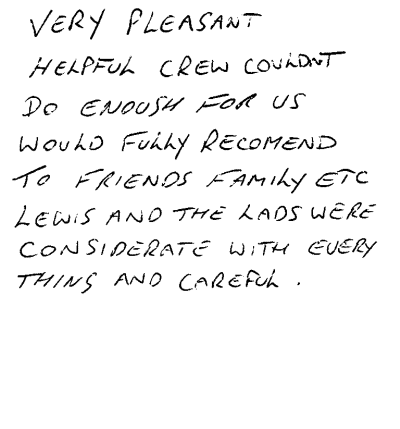 VERY PLEASANT
HELPFUL CREW COULDNT
DO ENOUGH FOR US
WOULD FULLY RECOMEND
TO FRIENDS FAMILY ETC
LEWIS AND THE LADS WERE
CONSIDERATE WITH EVERY
THING AND CAREFUL .